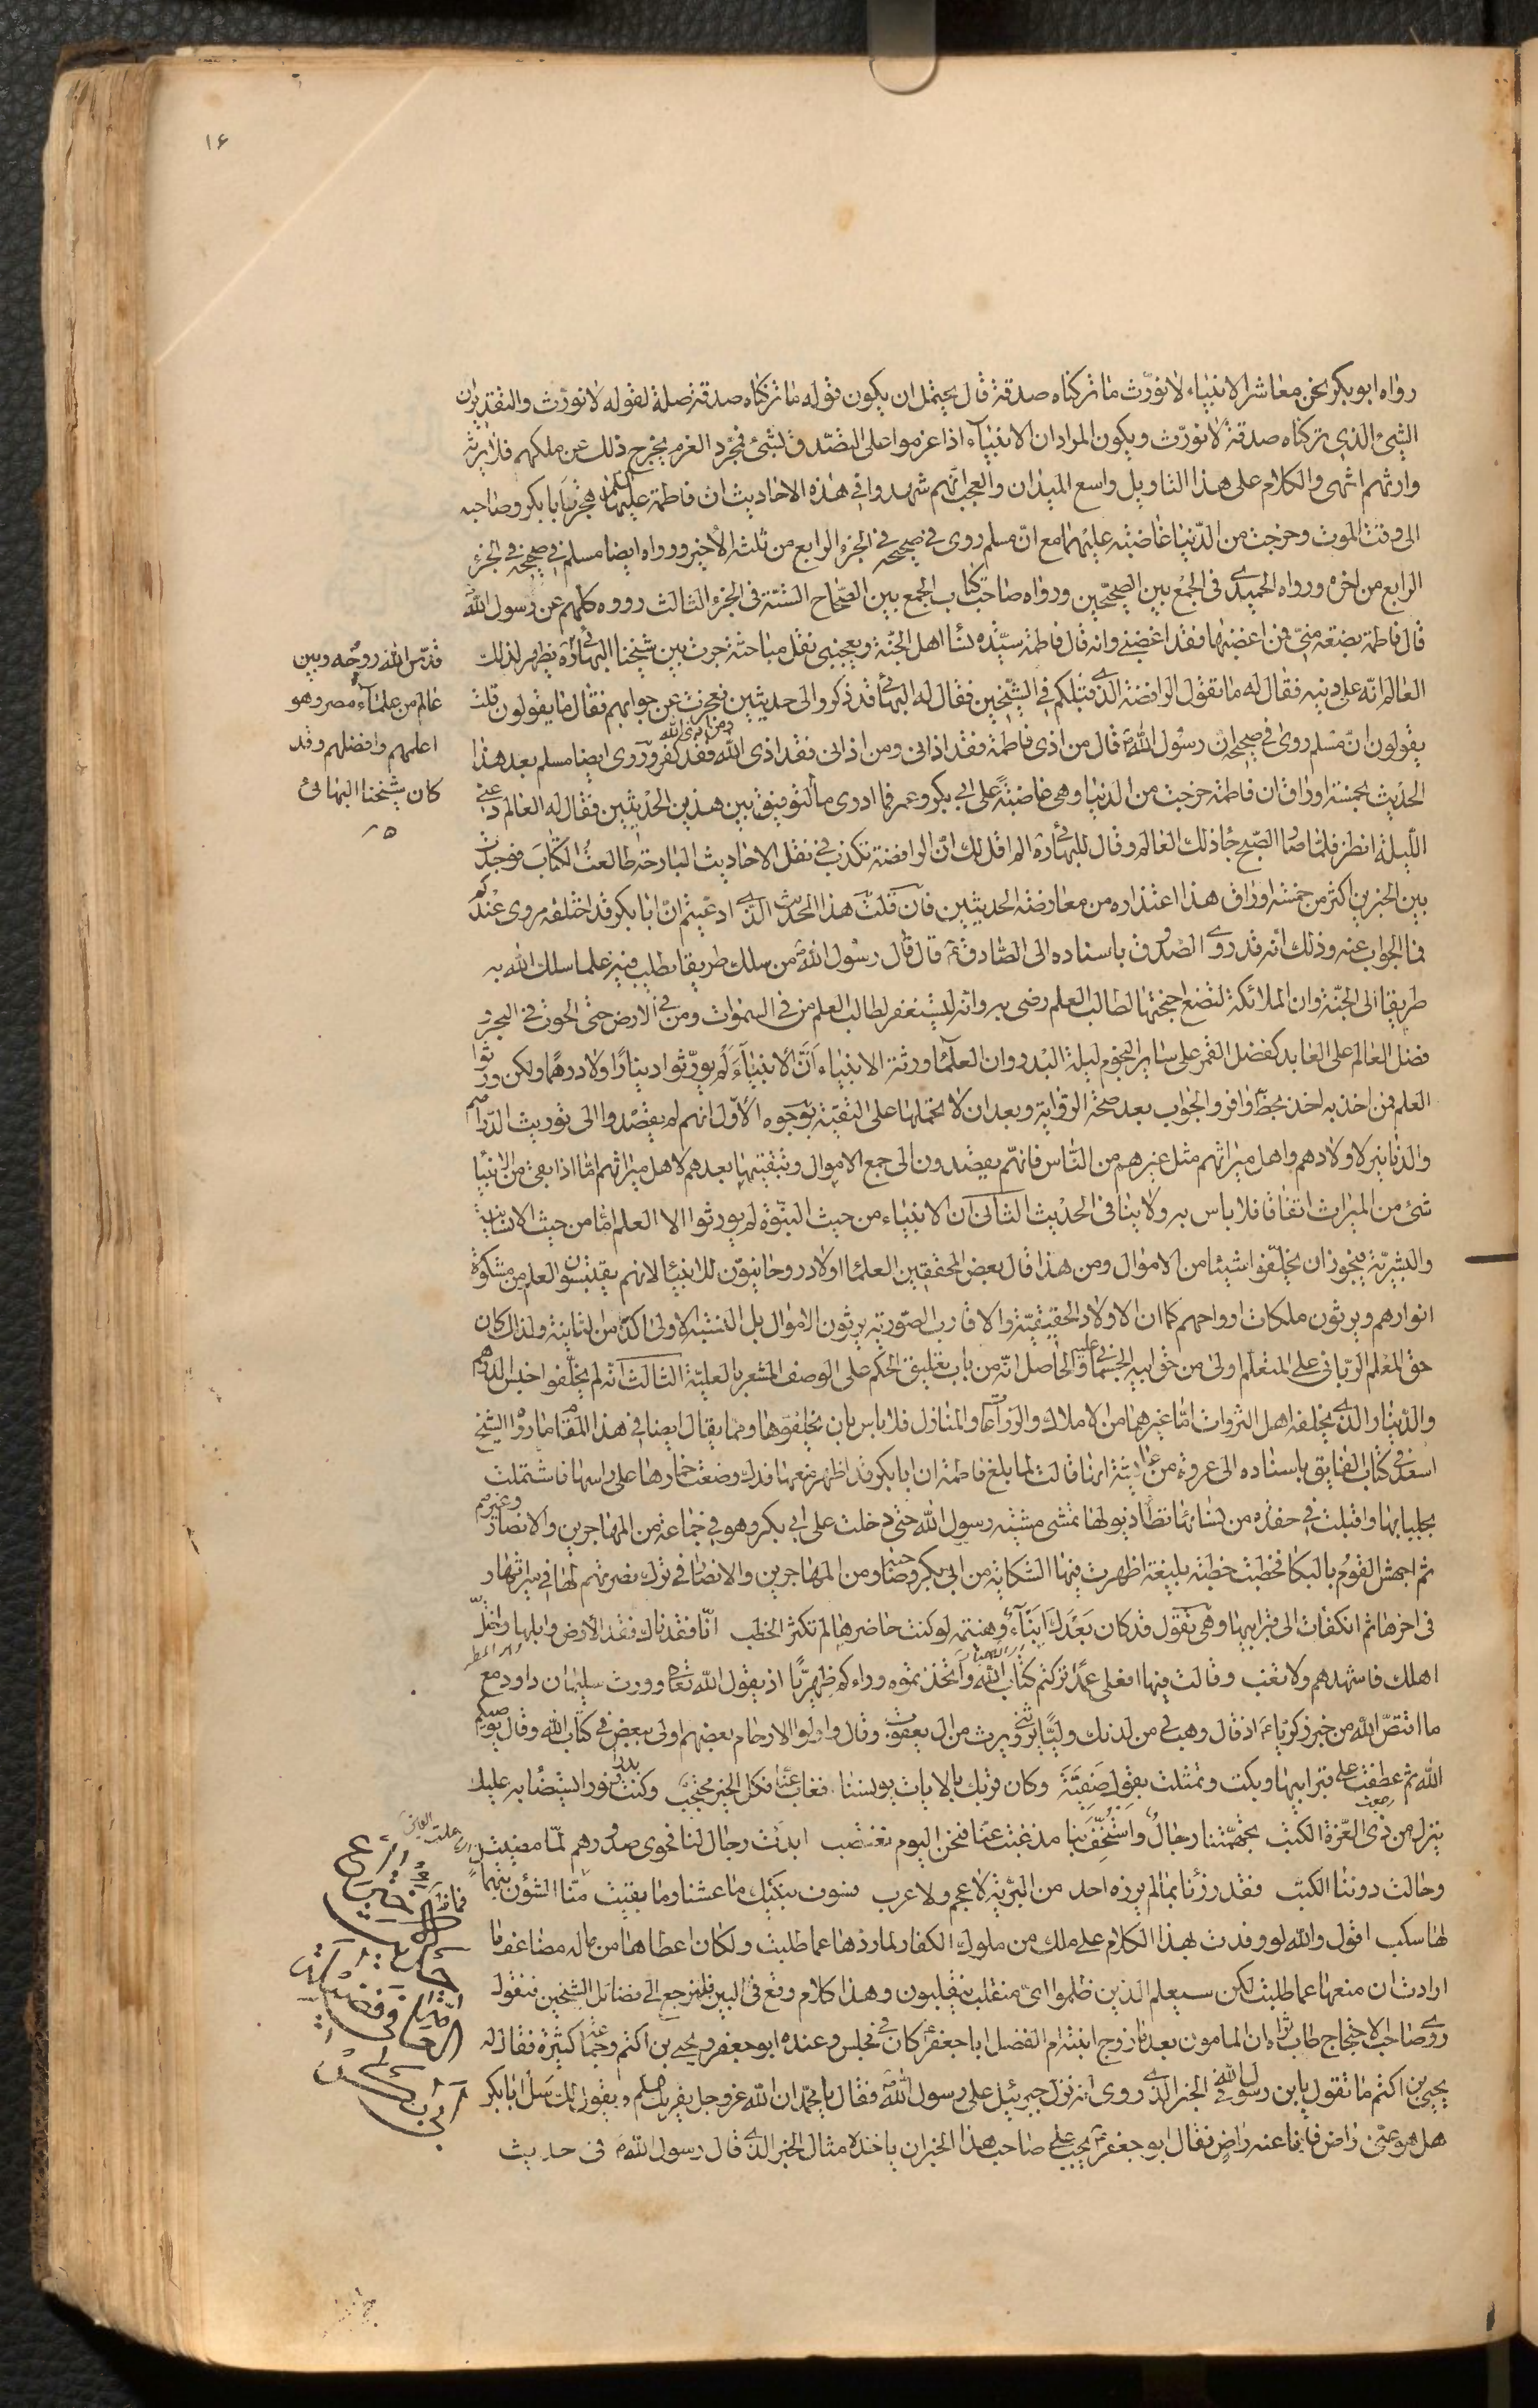 ١۶
رواه ابو بكر نحن معاشر الانبياء لا نورّث ما تركناه صدقة قال يحتمل ان يكون قوله ما تركناه صدقة صلة لقوله لا نورّث والتقدير ان
الشئ الذى تركناه صدقة لا نورّث ويكون المراد ان الانبيآء اذا عزموا على التصدق بشئ فمجرد العزم يخرج ذلك عن ملكهم فلا يرثه
وارثهم انتهى والكلام على هذا التاويل واسع الميدان والعجب انهم شهدوا فى هذه الاحاديث ان فاطمة عليها السلام هجرت ابا بكر وصاحبه
الى وقت الموت وخرجت من الدّنيا غاضبة عليهما مع انّ مسلم روى فى صحيحه فى الجزء الرابع من ثلثه الأخير ورواه ايضا مسلم فى صحيحه فى الجزء
الرابع من اخره ورواه الحميدى فى الجمع بين الصحيحين ورواه صاحب كتاب الجمع بين الصّحاح الستّة فى الجزء الثالث رووه كلهم عن رسول اللهؐ
قال فاطمة بضعة منّى فمن اغضبها فقد اغضبنى وانه قال فاطمة سيّدة نسآء اهل الجنّة ويعجبنى نقل مباحثة جرت بين شيخنا البهائى ره يظهر لذلك
العالم انّه على دينه فقال له ما تقول الرافضة الذى قبلكم فى الشيخين فقال له البهائى قد ذكروا لى حديثين فعجزت عن جوابهم فقال ما يقولون قلت
يقولون انّ مسلم روى فى صحيحه ان رسول اللهؐ قال من اذى فاطمة فقد اذانى ومن اذانى فقد اذى الله ومن اذى الله فقد كفر وروى ايضا مسلم بعد هذا
الحديث بخمسة اوراق ان فاطمة خرجت من الدنيا وهى غاضبةً على ابى بكر وعمر فما ادرى ما التوفيق بين هذين الحديثين فقال له العالم دعنى
اللّيلة انظر فلما صار الصّبح جاء ذلك العالم وقال للبهائى ره الم اقل لك انّ الرافضة تكذب فى نقل الاحاديث البارحة طالعتُ الكتابَ فوجدت
بين الخبرين اكثر من خمسة اوراق هذا اعتذاره من معارضة الحديثين فان قلتَ هذا الحديث الذى ادعيتم انّ ابا بكر قد اختلقه مروى عندكم
فما الجواب عنه وذلك انه قد روى الصدوق باسناده الى الصّادقؑ قال قال رسول اللهؐ من سلك طريقا يطلب فيه علما سلك الله به
طريقا الى الجنّة وان الملائكة لتضع اجنحتها لطالب العلم رضى به وانّه ليستغفر لطالب العلم من فى السموات ومن فى الارض حتى الحوت فى البحر و
فضل العالم على العابد كفضل القمر على ساير النجوم ليلة البدر وان العلمآء ورثة الانبياء انّ الانبيآءَ لم يورّثوا دينارًا ولا درهمًا ولكن ورّثوا
العلم فمن اخذ به اخذ بحظّ وافر والجواب بعد صحّة الرّواية وبعد ان لا نحملها على التقيّة بوجوه الأوّل انهم لم يقصدوا الى توريث الدّراهم
والدنانير لاولادهم واهل ميراثهم مثل غيرهم من النّاس فانّهم يقصدون الى جمع الاموال وتبقيتها بعدهم لاهل ميراثهم امّا اذا بقى من الانبيا
شئ من الميراث اتفاقا فلا باس به ولا ينافى الحديث الثانى ان الانبياء من حيث النبوّة لم يورثوا الا العلم امّا من حيث الانسانية
والبشريّة فيجوز ان يخلّفوا شيئا من الاموال ومن هذا قال بعض المحققين العلماء اولاد روحانيون للانبيآء لانهم يقتبسون العلم من مشكوة
انوارهم ويرثون ملكات ارواحهم كما ان الاولاد الحقيقية والاقارب الصّورية يرثون الاموال بل النسبة الاولى اكد من الثانية ولذلك كان
حق المعلم الربانى على المتعلّم اولى من حق ابيه الجسمانى عليه والحاصل انّه من باب تعليق الحكم على الوصف المشعر بالعلية الثالث انّه لم يخلّفوا اخلس الدرهم
والدينار الذى يخلفه اهل الثروات امّا غيرهما من الاملاك والزراعات والمنازل فلا باس بان يخلفوها ومما يقال ايضا فى هذا المقام ما رواه الشيخ
اسعد فى كتاب الفايق باسناده الى عروة من عايشة انها قالت لما بلغ فاطمة ان ابا بكر قد اظهر منعها فدك وضعت خمارها على راسها فاشتملت
بجلبابها واقبلت فى حفدة من نسائها تطأ ذيولها تمشى مشية رسول الله حتى دخلت على ابى بكر وهو فى جماعة من المهاجرين والانصار وغيرهم
ثم اجهش القومُ بالبكا فخطبت خطبة بليغة اظهرت فيها الشكاية من ابى بكر وصاحبه ومن المهاجرين والانصار فى ترك نصرتهم لها فى ميراثها و
فى اخرها ثم انكفأت الى قبر ابيها وهى تقول قد كان بَعْدَكَ اَنْبَآءٌ وهنبثة لو كنت حاضرها لم تكثر الخطب انّا فقدناك فقد الأرض وابلها واختلّ
اهلك فاشهدهم ولا تغب وقالت فيها افعلى عمدٍ تركتم كتاب الله واتخذتموه وراءكم ظهريًّا اذ يقول الله تعالى وورث سليمان داود مع
ما اقتصّ الله من خبر زكريّاء ع اذ قال رب هب لى من لدنك وليًّا يرثنى ويرث من ال يعقوب وقال واولوا الارحام بعضهم اولى ببعض فى كتاب الله وقال يوصيكم
الله ثم عطفت على قبر ابيها وبكت وتمثلت بقول صَفيّة وكان قربك بالايات يونسنا فغاب عنّا فكل الخير محتجب وكنت بدرا ونورا يستضاء به عليك
ينزل من ذى العزّة الكتب تجهّمتنا رجالٌ واستُخِفَّ بنا مذ غبت عنّا فنحن اليوم نغتصب ابدت رجال لنا فحوى صدورهم لمّا مضيت
وحالت دوننا الكثب فقد رزئنا بما لم يرزه احد من البريّة لا عجم ولا عرب فسوف نبكيك ما عشنا وما بقيت منّا الشؤن بتهمال
لها سكب اقول والله لو وفدت بهذا الكلام على ملك من ملوك الكفار لما ردّها عما طلبت ولكان اعطاها من ماله مضاعف ما
ارادت ان منعها عما طلبت لكن سيعلم الذين ظلموا اىّ منقلب ينقلبون وهذا كلام وقع فى البين فلنرجع الى فضائل الشيخين فنقول
روى صاحب الاحتجاج طاب ثراه ان المامون بعد ما زوج ابنته ام الفضل ابا جعفرؑ كان فى مجلس وعنده ابو جعفر ويحيى بن اكثم وجماعة كثيرة فقال له
يحيى بن اكثم ما تقول يابن رسول الله فى الخبر الذى روى انه نزل جبرئيل على رسول اللهؐ فقال يا محمّد ان الله عز وجل يقريك السلم ويقول لك سَل ابا بكر
هل هو عنّى راض فانا عنه راضٍ فقال ابو جعفرؑ يجب على صاحب هذا الخبر ان ياخذ مثال الخبر الذى قال رسول اللهؐ فى حديث
قدّس الله روحُه وبين
عالم من علمآء مصر وهو
اعلمهم وافضلهم وقد
كان شيخنا البهائى